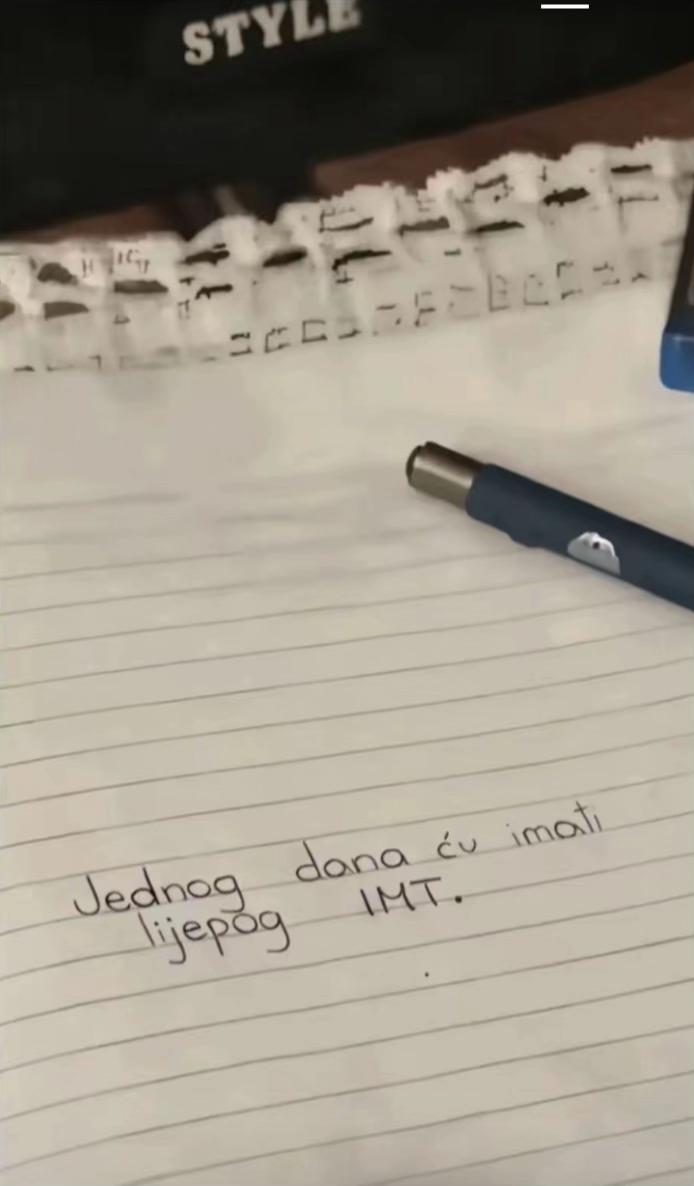 STYLE
Jednog dana ću imati
lijepog IMT.